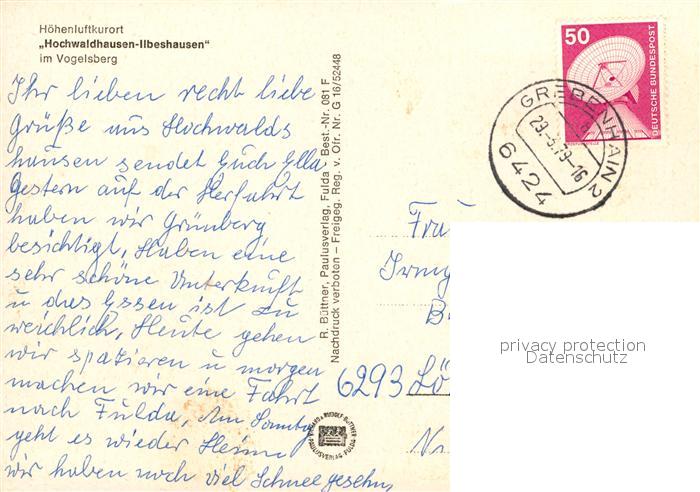 Höhenluftkurort
„Hochwaldhausen-Ilbeshausen“
im Vogelsberg
Ihr lieben recht liebe
Grüße aus Hochwalds
hausen sendet Euch Ella
Gestern auf der Herfahrt
haben wir Grünberg
besichtigt, Haben eine
sehr schöne Unterkunft
u das Essen ist zu
reichlich, Heute gehen
wir spazieren u morgen
machen wir eine Fahrt
nach Fulda, Am Samstag
geht es wieder Heim
wir haben noch viel Schnee gesehn,
R. Büttner, Paulusverlag, Fulda Best.-Nr. 081 F
Nachdruck verboten – Freigeg. Reg. v. Ofr. Nr. G 16/52448
50
DEUTSCHE BUNDESPOST
GREBENHAIN 2
29.-3.79-16
6424
Frau
Irmg
B
6293 Lö
N
RUDOLF BÜTTNER
PAULUSVERLAG FULDA
privacy protection
Datenschutz